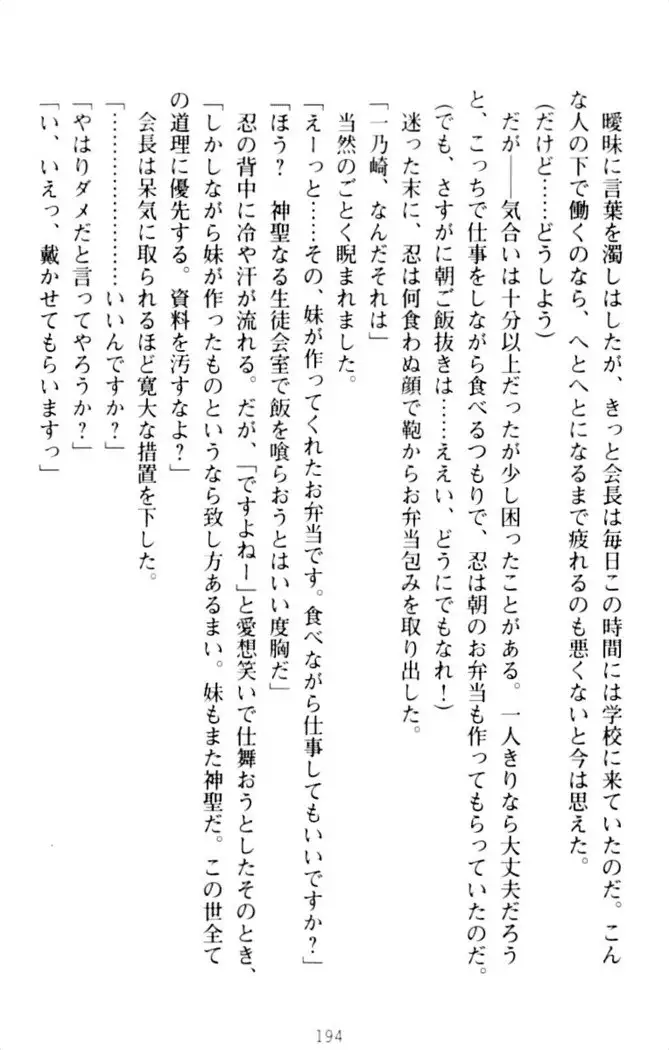 曖昧に言葉を濁しはしたが、きっと会長は毎日この時間には学校に来ていたのだ。こん
な人の下で働くのなら、へとへとになるまで疲れるのも悪くないと今は思えた。
(だけど……どうしよう)
だが――気合いは十分以上だったが少し困ったことがある。一人きりなら大丈夫だろう
と、こっちで仕事をしながら食べるつもりで、忍は朝のお弁当も作ってもらっていたのだ。
(でも、さすがに朝ご飯抜きは……ええい、どうにでもなれ!)
迷った末に、忍は何食わぬ顔で鞄からお弁当包みを取り出した。
「一乃崎、なんだそれは」
当然のごとく睨まれました。
「えーっと……その、妹が作ってくれたお弁当です。食べながら仕事してもいいですか?」
「ほう? 神聖なる生徒会室で飯を喰らおうとはいい度胸だ」
忍の背中に冷や汗が流れる。だが、「ですよねー」と愛想笑いで仕舞おうとしたそのとき、
「しかしながら妹が作ったものというなら致し方あるまい。妹もまた神聖だ。この世全て
の道理に優先する。資料を汚すなよ?」
会長は呆気に取られるほど寛大な措置を下した。
「…………………いいんですか?」
「やはりダメだと言ってやろうか?」
「い、いえっ、戴かせてもらいますっ」
194